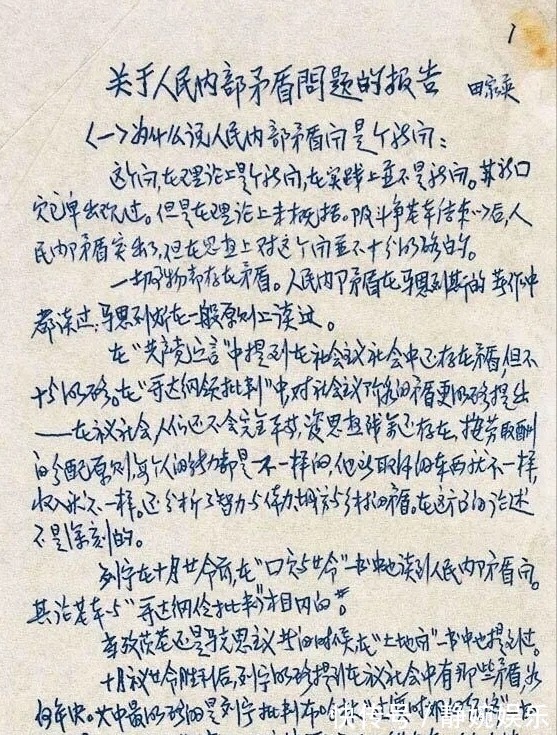 1
关于人民内部矛盾問題的报告 田家英
〈一〉为什么说人民内部矛盾问是个新问:
这个问,在理论上是个新问,在实践上並不是新问。其
过。但是在理论上未概括。阶斗争基本结束以后,人
民内部矛盾突出了,但在思想上对这个问並不十分明确的。
一切事物都存在矛盾。人民内部矛盾在马恩列斯的著作中
都谈过,马恩列斯在一般原则上谈过。
在“共产党宣言”中提到在社会主义社会中还存在矛盾,但不
十分明确。在“哥达纲领批判”中,对社会主义的矛盾更明确提出
——在社会,人们还不会完全平等,思想残余还存在,按劳取酬
的分配原则,每个人的能力都是不一样的,他所取得的东西就不一样,
收入不一样。还分析了智力与体力,城市与乡村的矛盾。在这方面的论述
不是深刻的。
列宁在十月革命前,在“国家与革命”一书中也谈到人民内部矛盾问。
其论基本与“哥达纲领批判”相同的。
普列汉诺夫还是马克思主义者的时候,在“”一书中也提到过。
十月革命胜利后,列宁明确提到在社会中有那些矛盾,如
何解决。其中最明确的是列宁批判布
快传号/静妮娱乐